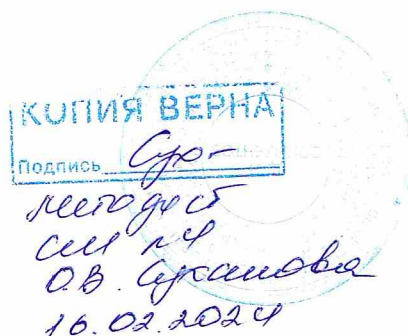 КОПИЯ ВЕРНА
Подпись
методист
О.В. Суханова
16.02.2024